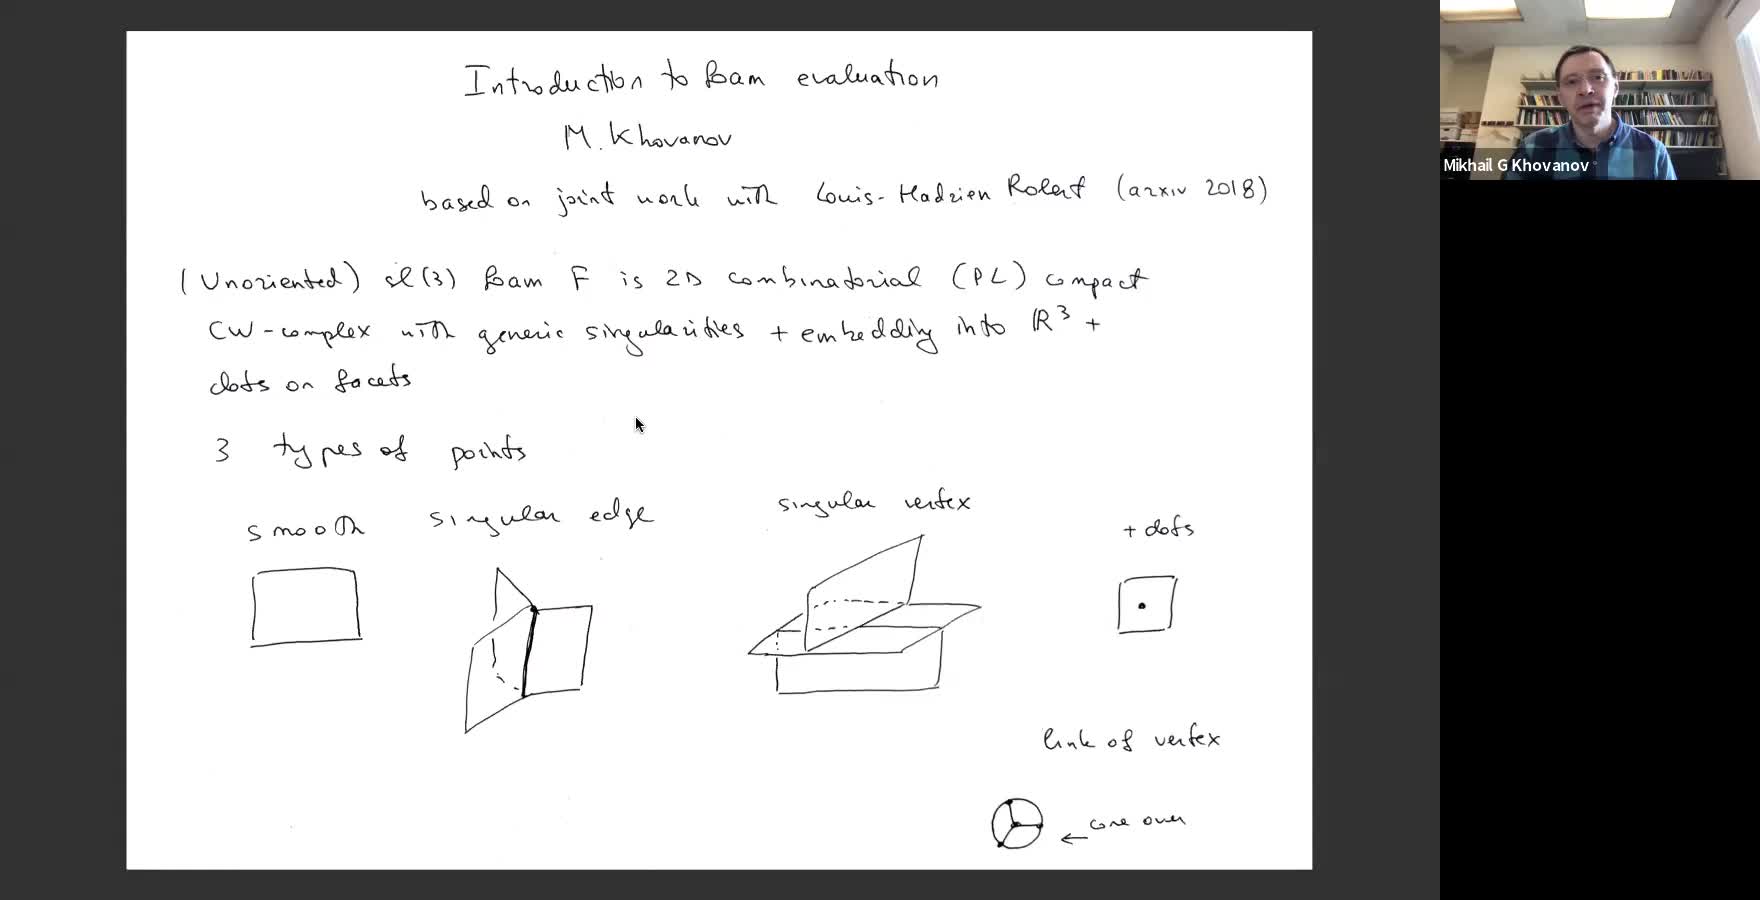 Introduction to foam evaluation
M. Khovanov
based on joint work with Louis-Hadrien Robert (arxiv 2018)
(Unoriented) sl(3) foam F is 2D combinatorial (PL) compact
CW-complex with generic singularities + embedding into R³ +
dots on facets
3 types of points
smooth singular edge singular vertex + dots
link of vertex
← cone over
Mikhail G Khovanov